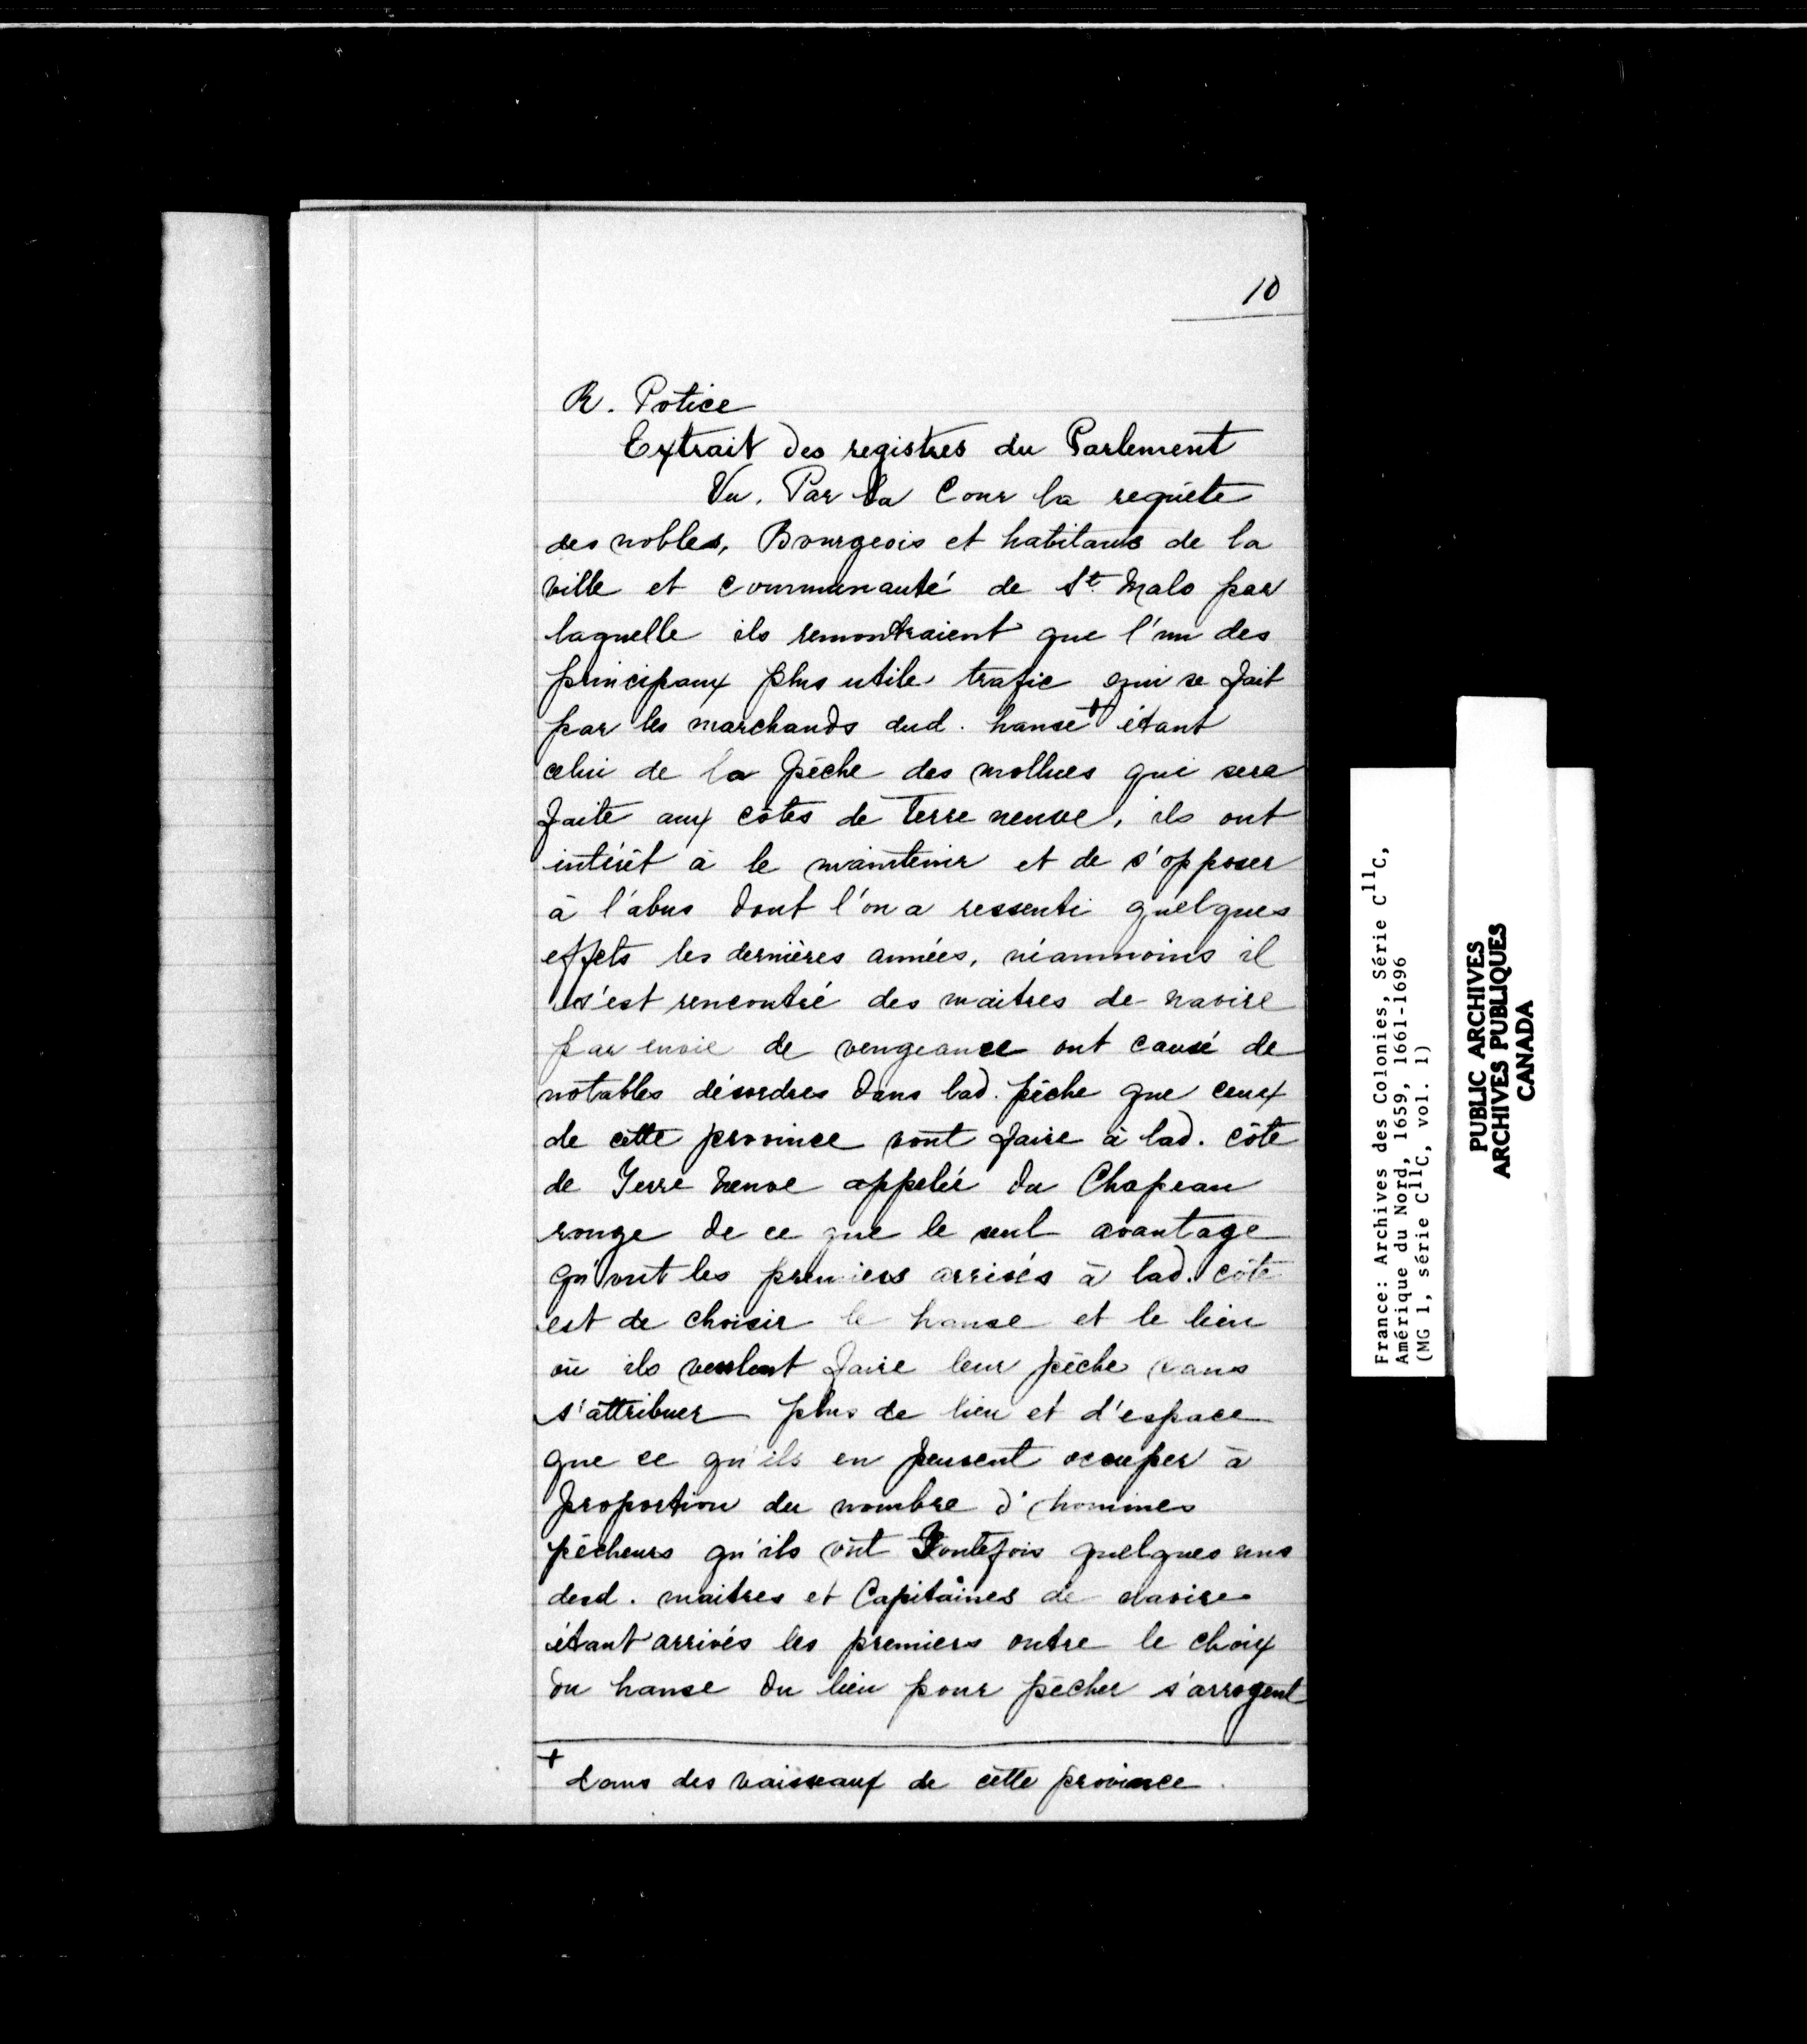 10
R. Potice
Extrait des registres du Parlement
Vu. Par la Cour la requête
des nobles, Bourgeois et habitans de la
ville et communauté de St. Malo par
laquelle ils remontraient que l'un des
principaux plus utile trafic qui se fait
par les marchands dud. hanse + étant
celui de la pêche des mollues qui sera
faite aux côtes de Terre neuve, ils ont
intérêt à le maintenir et de s'opposer
à l'abus dont l'on a ressenti quelques
effets les dernières années, néammoins il
s'est rencontré des maitres de navire
par envie de vengeance ont causé de
notables désordres dans lad. pêche que ceux
de cette province vont faire à lad. côte
de Terre Neuve appelée du Chapeau
rouge de ce que le seul avantage
qu'ont les premiers arrivés à lad. côte
est de choisir le hanse et le lieu
où ils veulent faire leur pêche sans
s'attribuer plus de lieu et d'espace
que ce qu'ils en peuvent occuper à
proportion du nombre d'hommes
pêcheurs qu'ils ont Toutefois quelques uns
desd. maitres et Capitaines de navire
étant arrivés les premiers outre le choix
du hanse du lieu pour pêcher s'arrogent
+ dans des vaisseaux de cette province.
France: Archives des Colonies, Série C11C,
Amérique du Nord, 1659, 1661-1696
(MG 1, série C11C, vol. 1)
PUBLIC ARCHIVES
ARCHIVES PUBLIQUES
CANADA